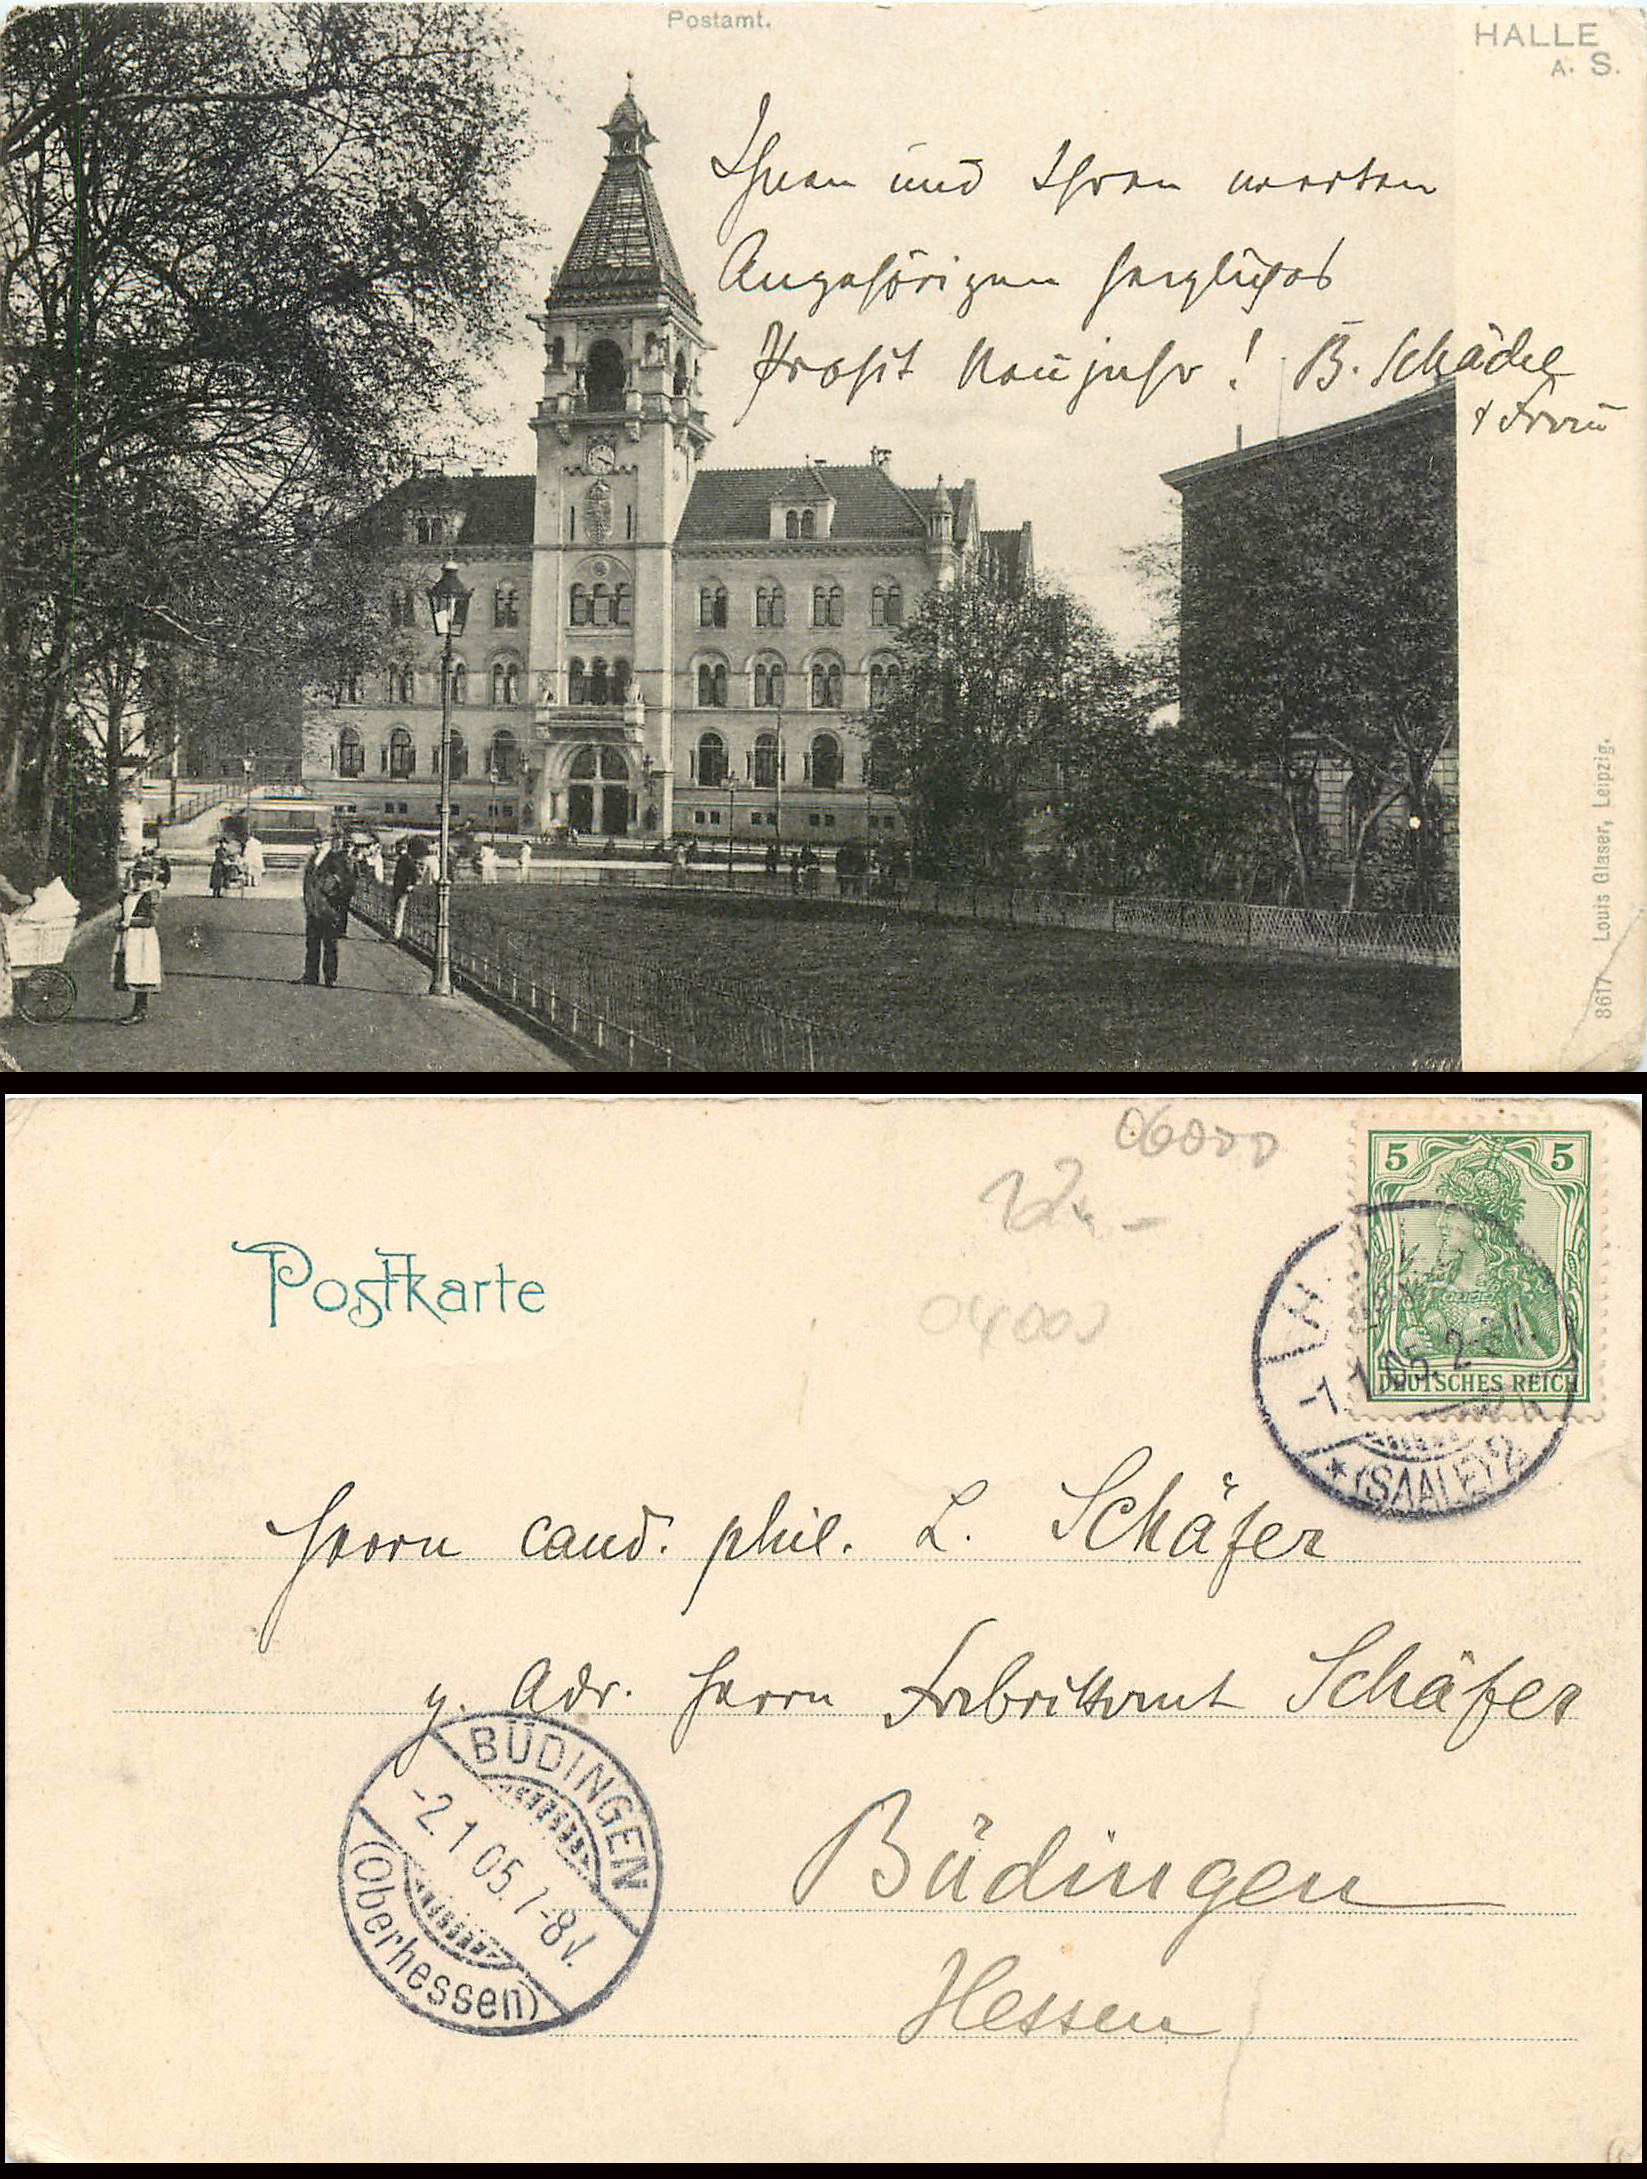 Postamt.
HALLE
A. S.
Ihnen und Ihren werten
Angehörigen herzliches
Prosit Neujahr! B. Schädel
& Frau
8617 Louis Glaser, Leipzig.
06000
04000
Postkarte
5 5
DEUTSCHES REICH
1.1.05. 2-3V.
* (SAALE) 2
Herrn cand. phil. L. Schäfer
z. Adr. Herrn Fabrikant Schäfer
Büdingen
Hessen
BÜDINGEN
-2.1.05. 7-8V.
(Oberhessen)